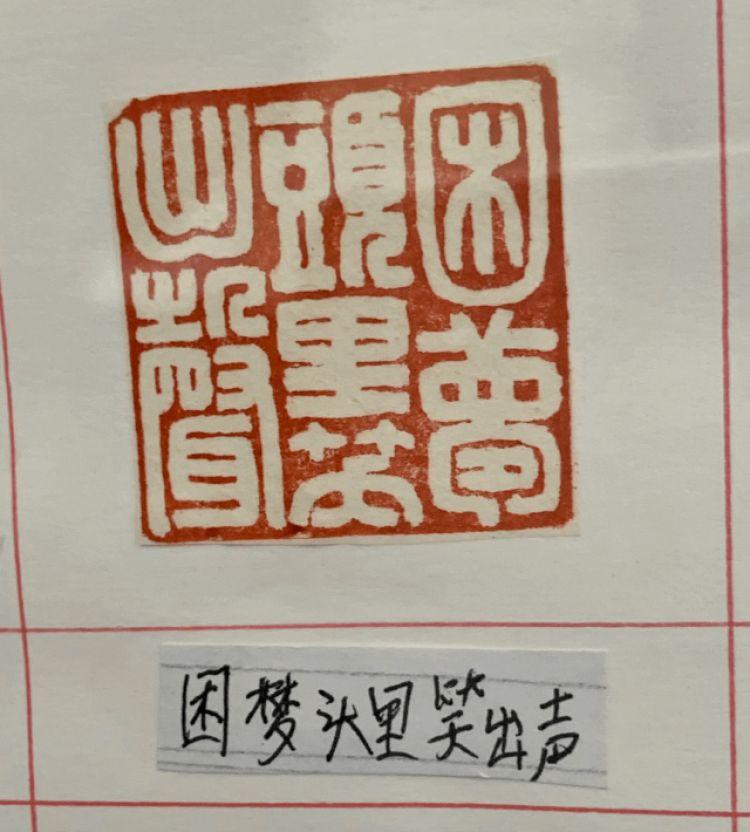 困夢
頭里笑
出聲
困梦头里笑出声